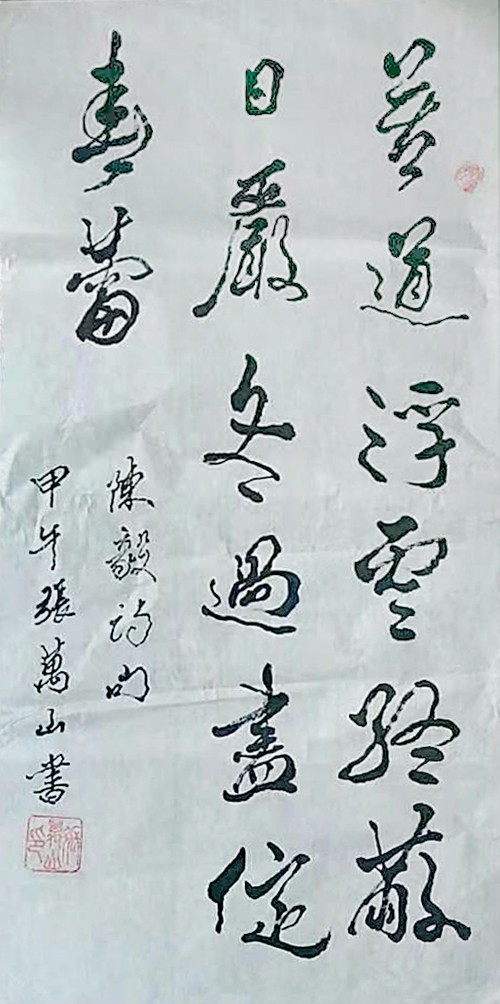 莫道浮雲終蔽
日嚴冬過盡綻
春蕾
陳毅詩句
甲午張萬山書
張萬山印